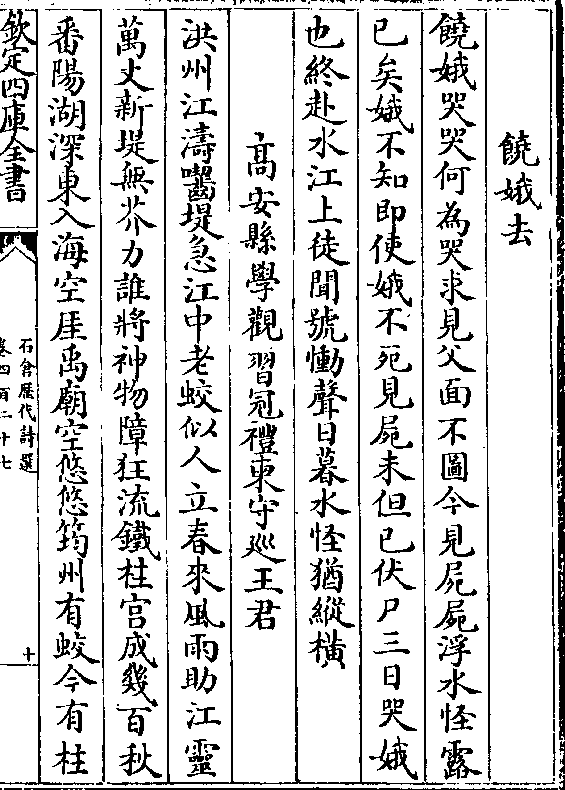 饒娥去
饒娥哭哭何為哭求見父面不圖今見屍屍浮水怪露
已矣娥不知即使娥不死見屍未但已伏尸三日哭娥
也終赴水江上徒聞號慟聲日暮水怪猶縱橫
高安縣學觀習冠禮柬守廵王君
洪州江濤囓堤急江中老蛟似人立春來風雨助江靈
萬丈新堤無芥力誰將神物障狂流鐵柱宮成幾百秋
番陽湖深東入海空厓禹廟空悠悠筠州有蛟今有柱
欽定四庫全書
石倉歷代詩選
卷四百二十七
十